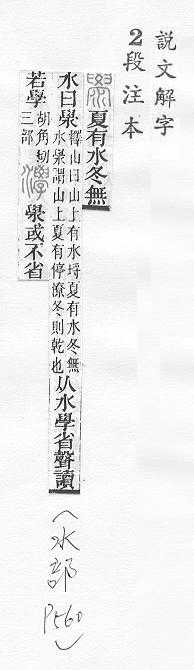 說文解字
2段注本
澩夏有水冬無
水曰澩
釋山曰山上有水埒夏有水冬無
水澩謂山上夏有停潦冬則乾也
从水學省聲讀
若學
胡角切
三部
澩或不省
(水部 P560)